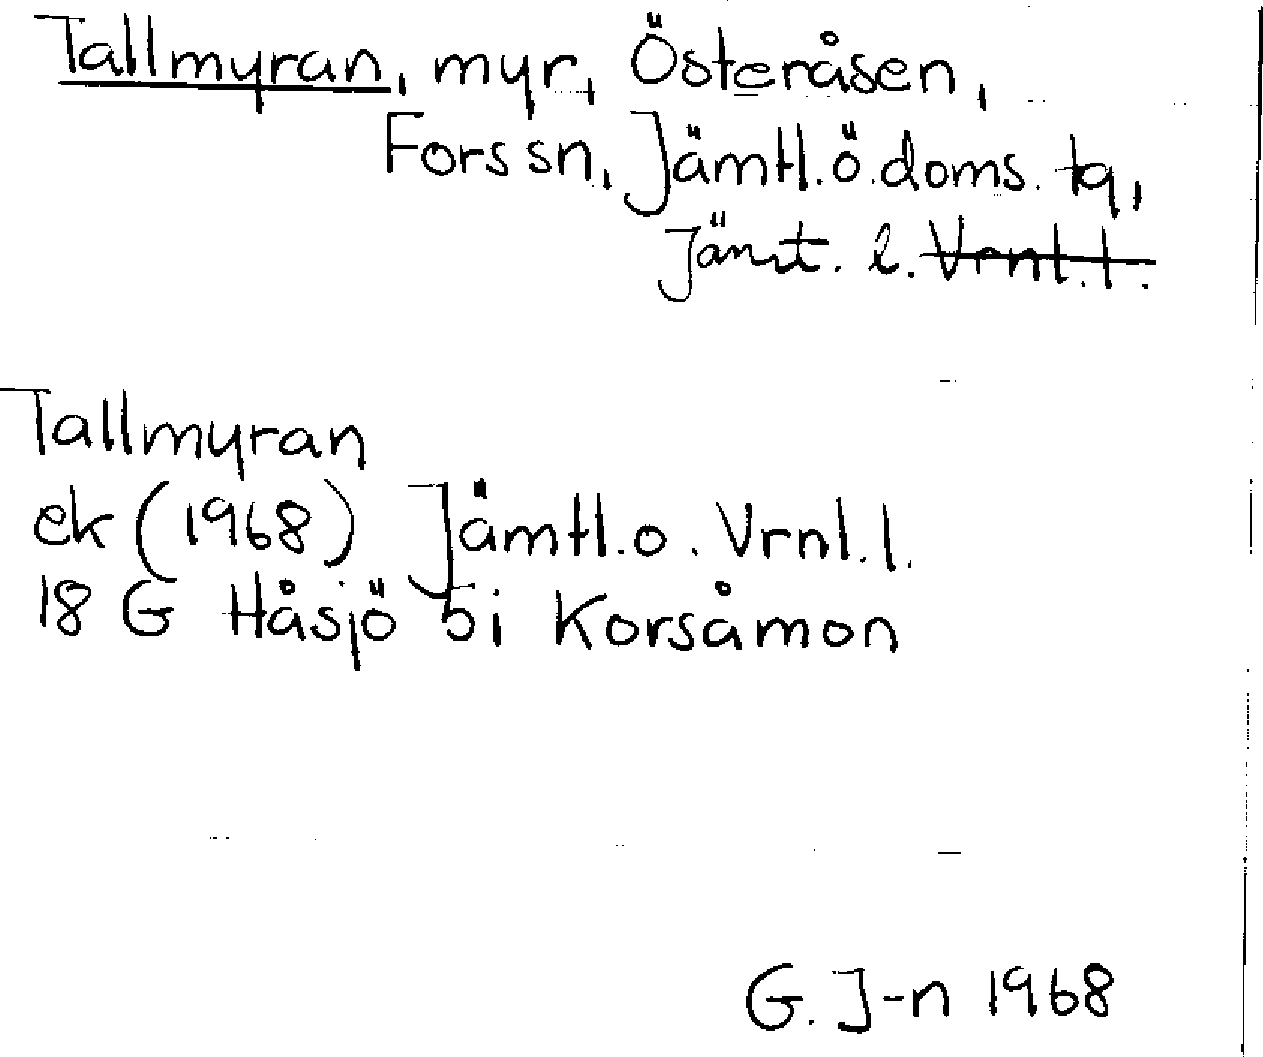 Tallmyran, myr, Österåsen,
Fors sn, Jämtl. ö. doms. tg,
Jämt. l. Vrnl. l.
Tallmyran
ek (1968) Jämtl. o. Vrnl. l.
18 G Håsjö 5i Korsåmon
G. J-n 1968